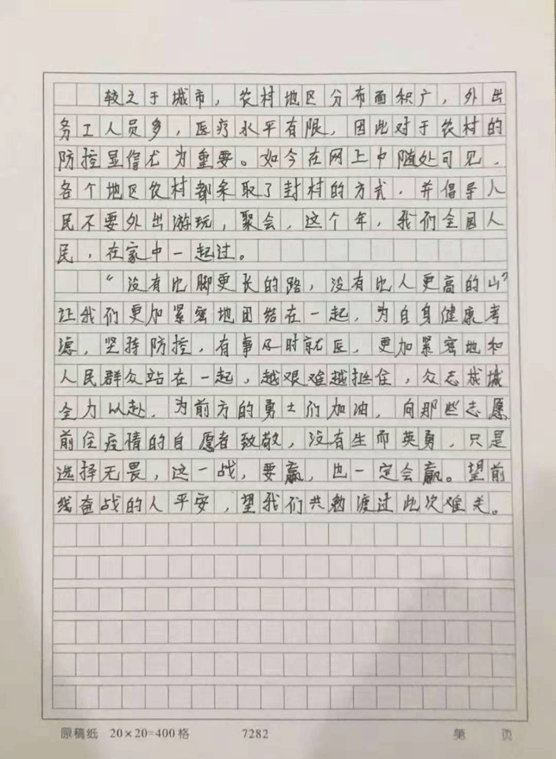 较之于城市，农村地区分布面积广，外出
务工人员多，医疗水平有限，因此对于农村的
防控显借尤为重要。如今在网上中随处可见，
各个地区农村都采取了封村的方式，并倡导人
民不要外出游玩，聚会，这个年，我们全国人
民，在家中一起过。
“没有比脚更长的路，没有比人更高的山”
让我们更加紧密地团结在一起，为自身健康考
虑，坚持防控，有事及时就医，更加紧密地和
人民群众站在一起，越艰难越挺住，众志成城
全力以赴，为前方的勇士们加油，向那些志愿
前往疫情的自愿者致敬，没有生而英勇，只是
选择无畏，这一战，要赢，也一定会赢。望前
线奋战的人平安，望我们共勉渡过此次难关。
原稿纸 20×20=400格 7282 第 页